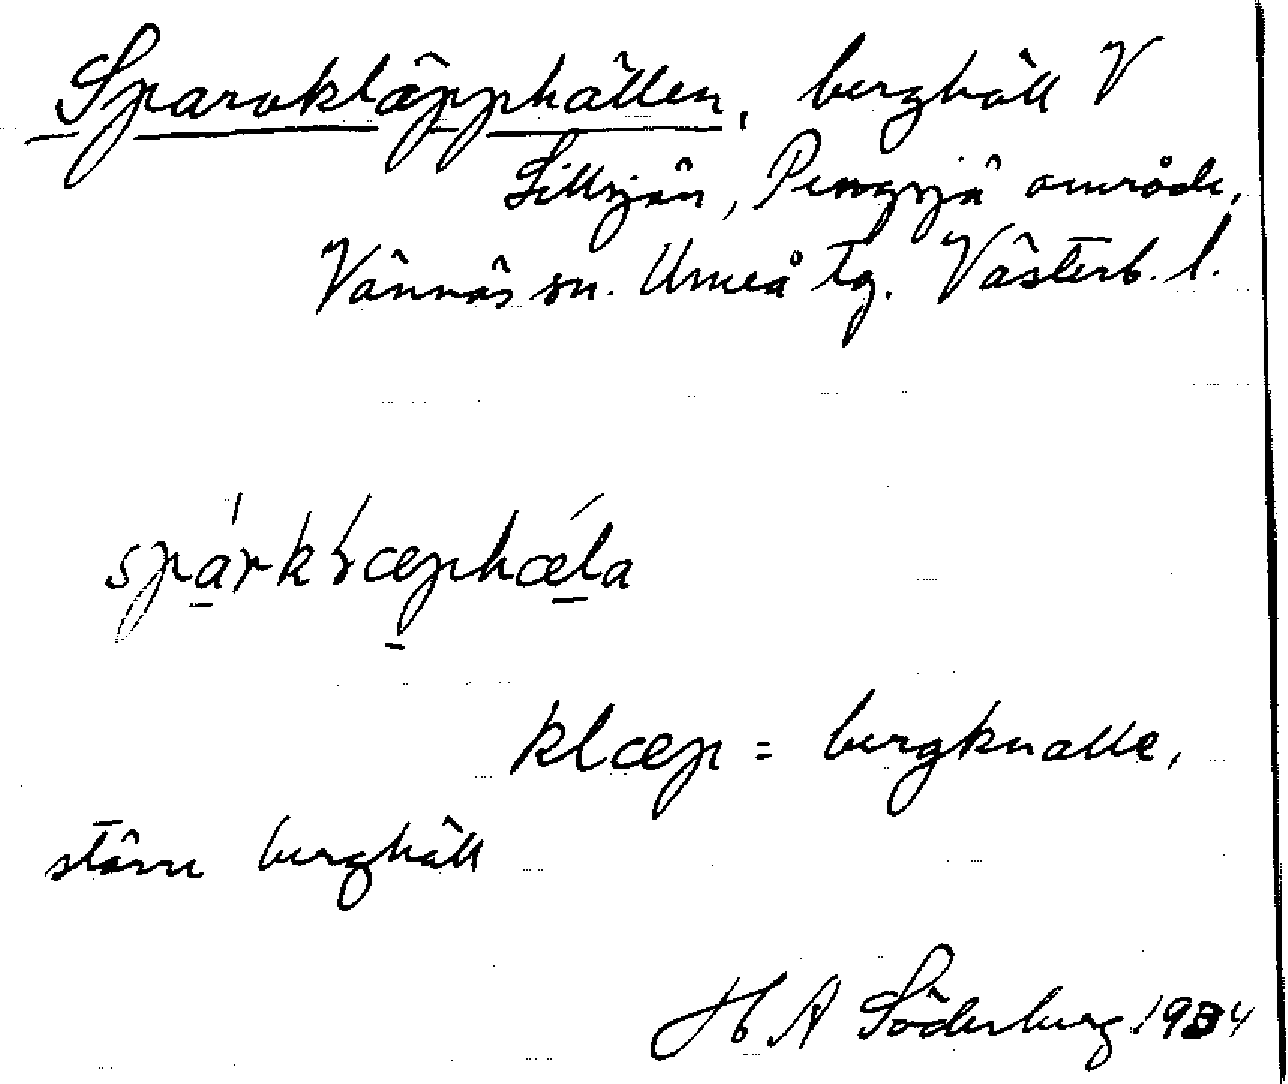 Sparvkläpphällen, berghäll V
Lillsjön, Pengsjö område,
Vännäs sn. Umeå tg. Västerb. l.
klæp = bergknalle,
större berghäll
H A Söderberg 1934